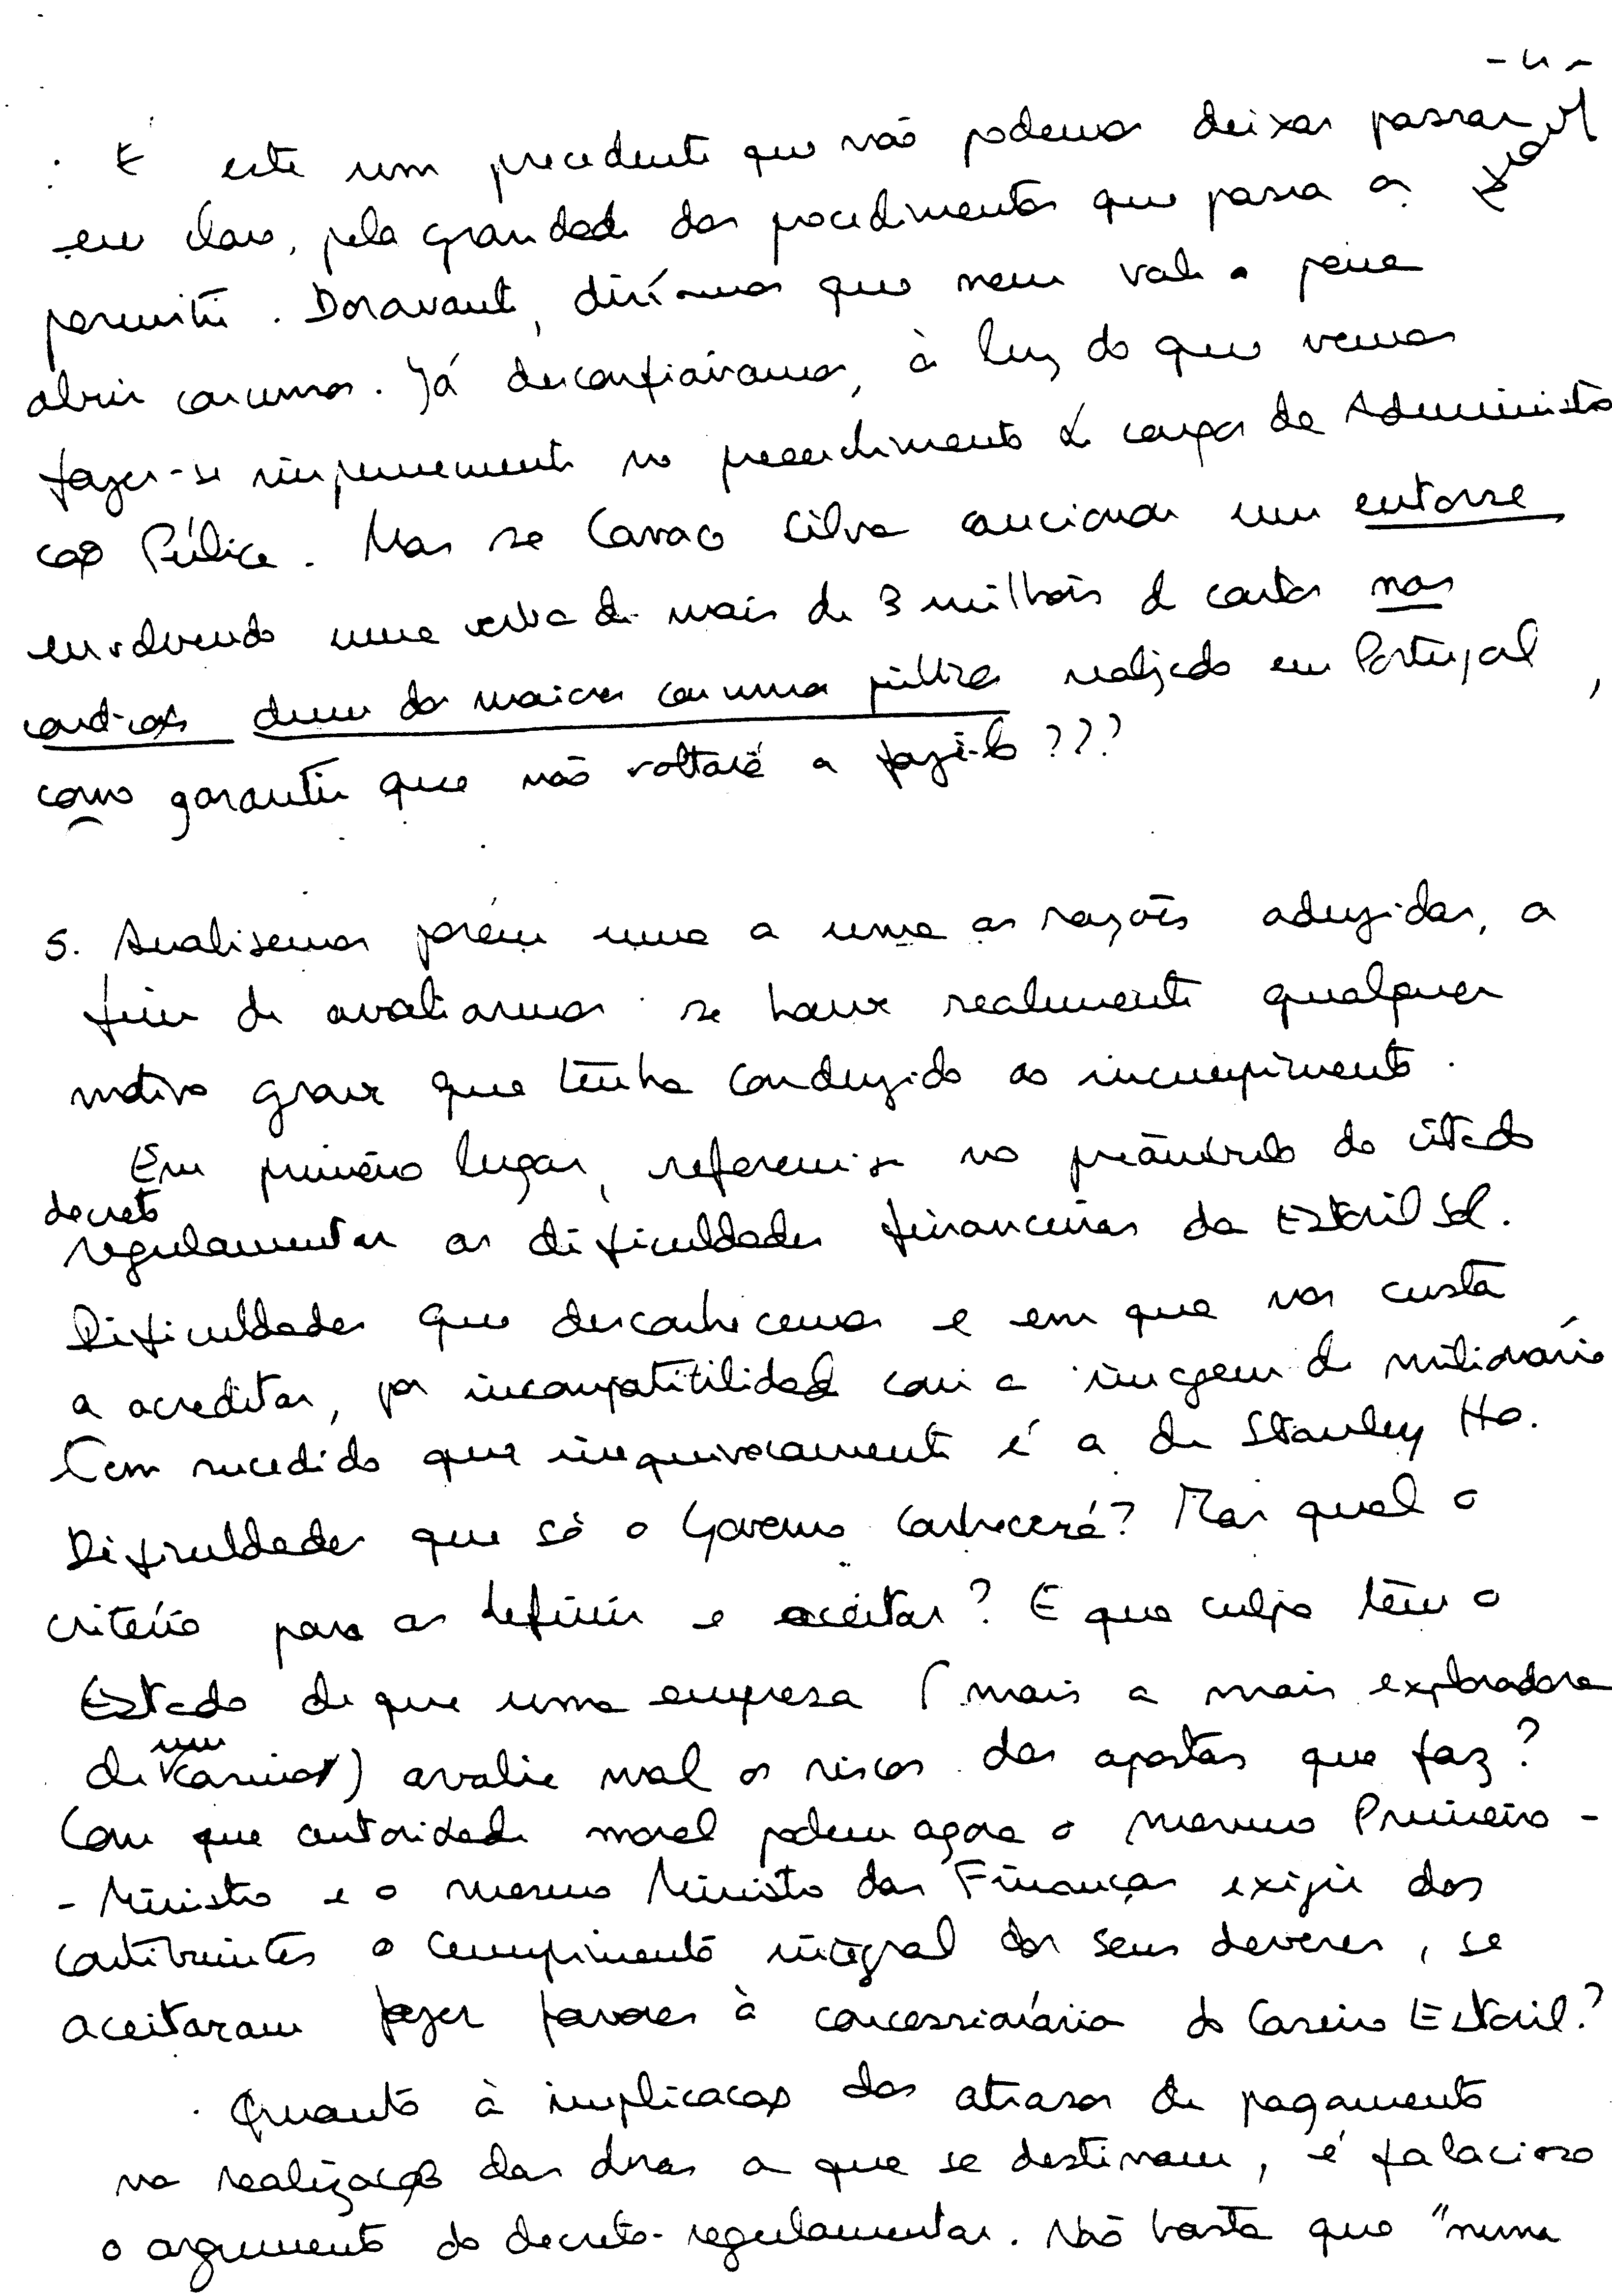 - 4 -
É este um precedente que não podemos deixar passar
em claro, pela grandeza dos procedimentos que passa a
permitir. Doravante, diríamos que nem vale a pena
abrir concursos. Já desconfiávamos, à luz do que vemos
fazer-se impunemente no preenchimento de cargos da Administra
ção Pública. Mas se Cavaco Silva caucionou um entorse
envolvendo uma verba de mais de 3 milhões de contos nas
condições dum dos maiores concursos públicos realizado em Portugal,
como garantir que não voltará a fazê-lo???
5. Analisemos porém uma a uma as razões aduzidas, a
fim de avaliarmos se houve realmente qualquer
motivo grave que tenha conduzido ao incumprimento.
Em primeiro lugar, referem-se no preâmbulo do citado
decreto
regulamentar as dificuldades financeiras da Estoril Sol.
Dificuldades que desconhecemos e em que nos custa
a acreditar, por incompatibilidade com a imagem de milionário
bem sucedido que inequivocamente é a de Stanley Ho.
Dificuldades que só o Governo conhecerá? Mas qual o
critério para as definir e aceitar? E que culpa tem o
Estado de que uma empresa (mais a mais exploradora
de um casino) avalie mal os riscos das apostas que faz?
Com que autoridade moral podem agora o mesmo Primeiro-
- Ministro e o mesmo Ministro das Finanças exigir dos
contribuintes o cumprimento integral dos seus deveres, se
aceitaram fazer favores à concessionária do Casino Estoril?
Quanto à implicação dos atrasos de pagamento
na realização das obras a que se destinam, é falacioso
o argumento do decreto-regulamentar. Não basta que "numa